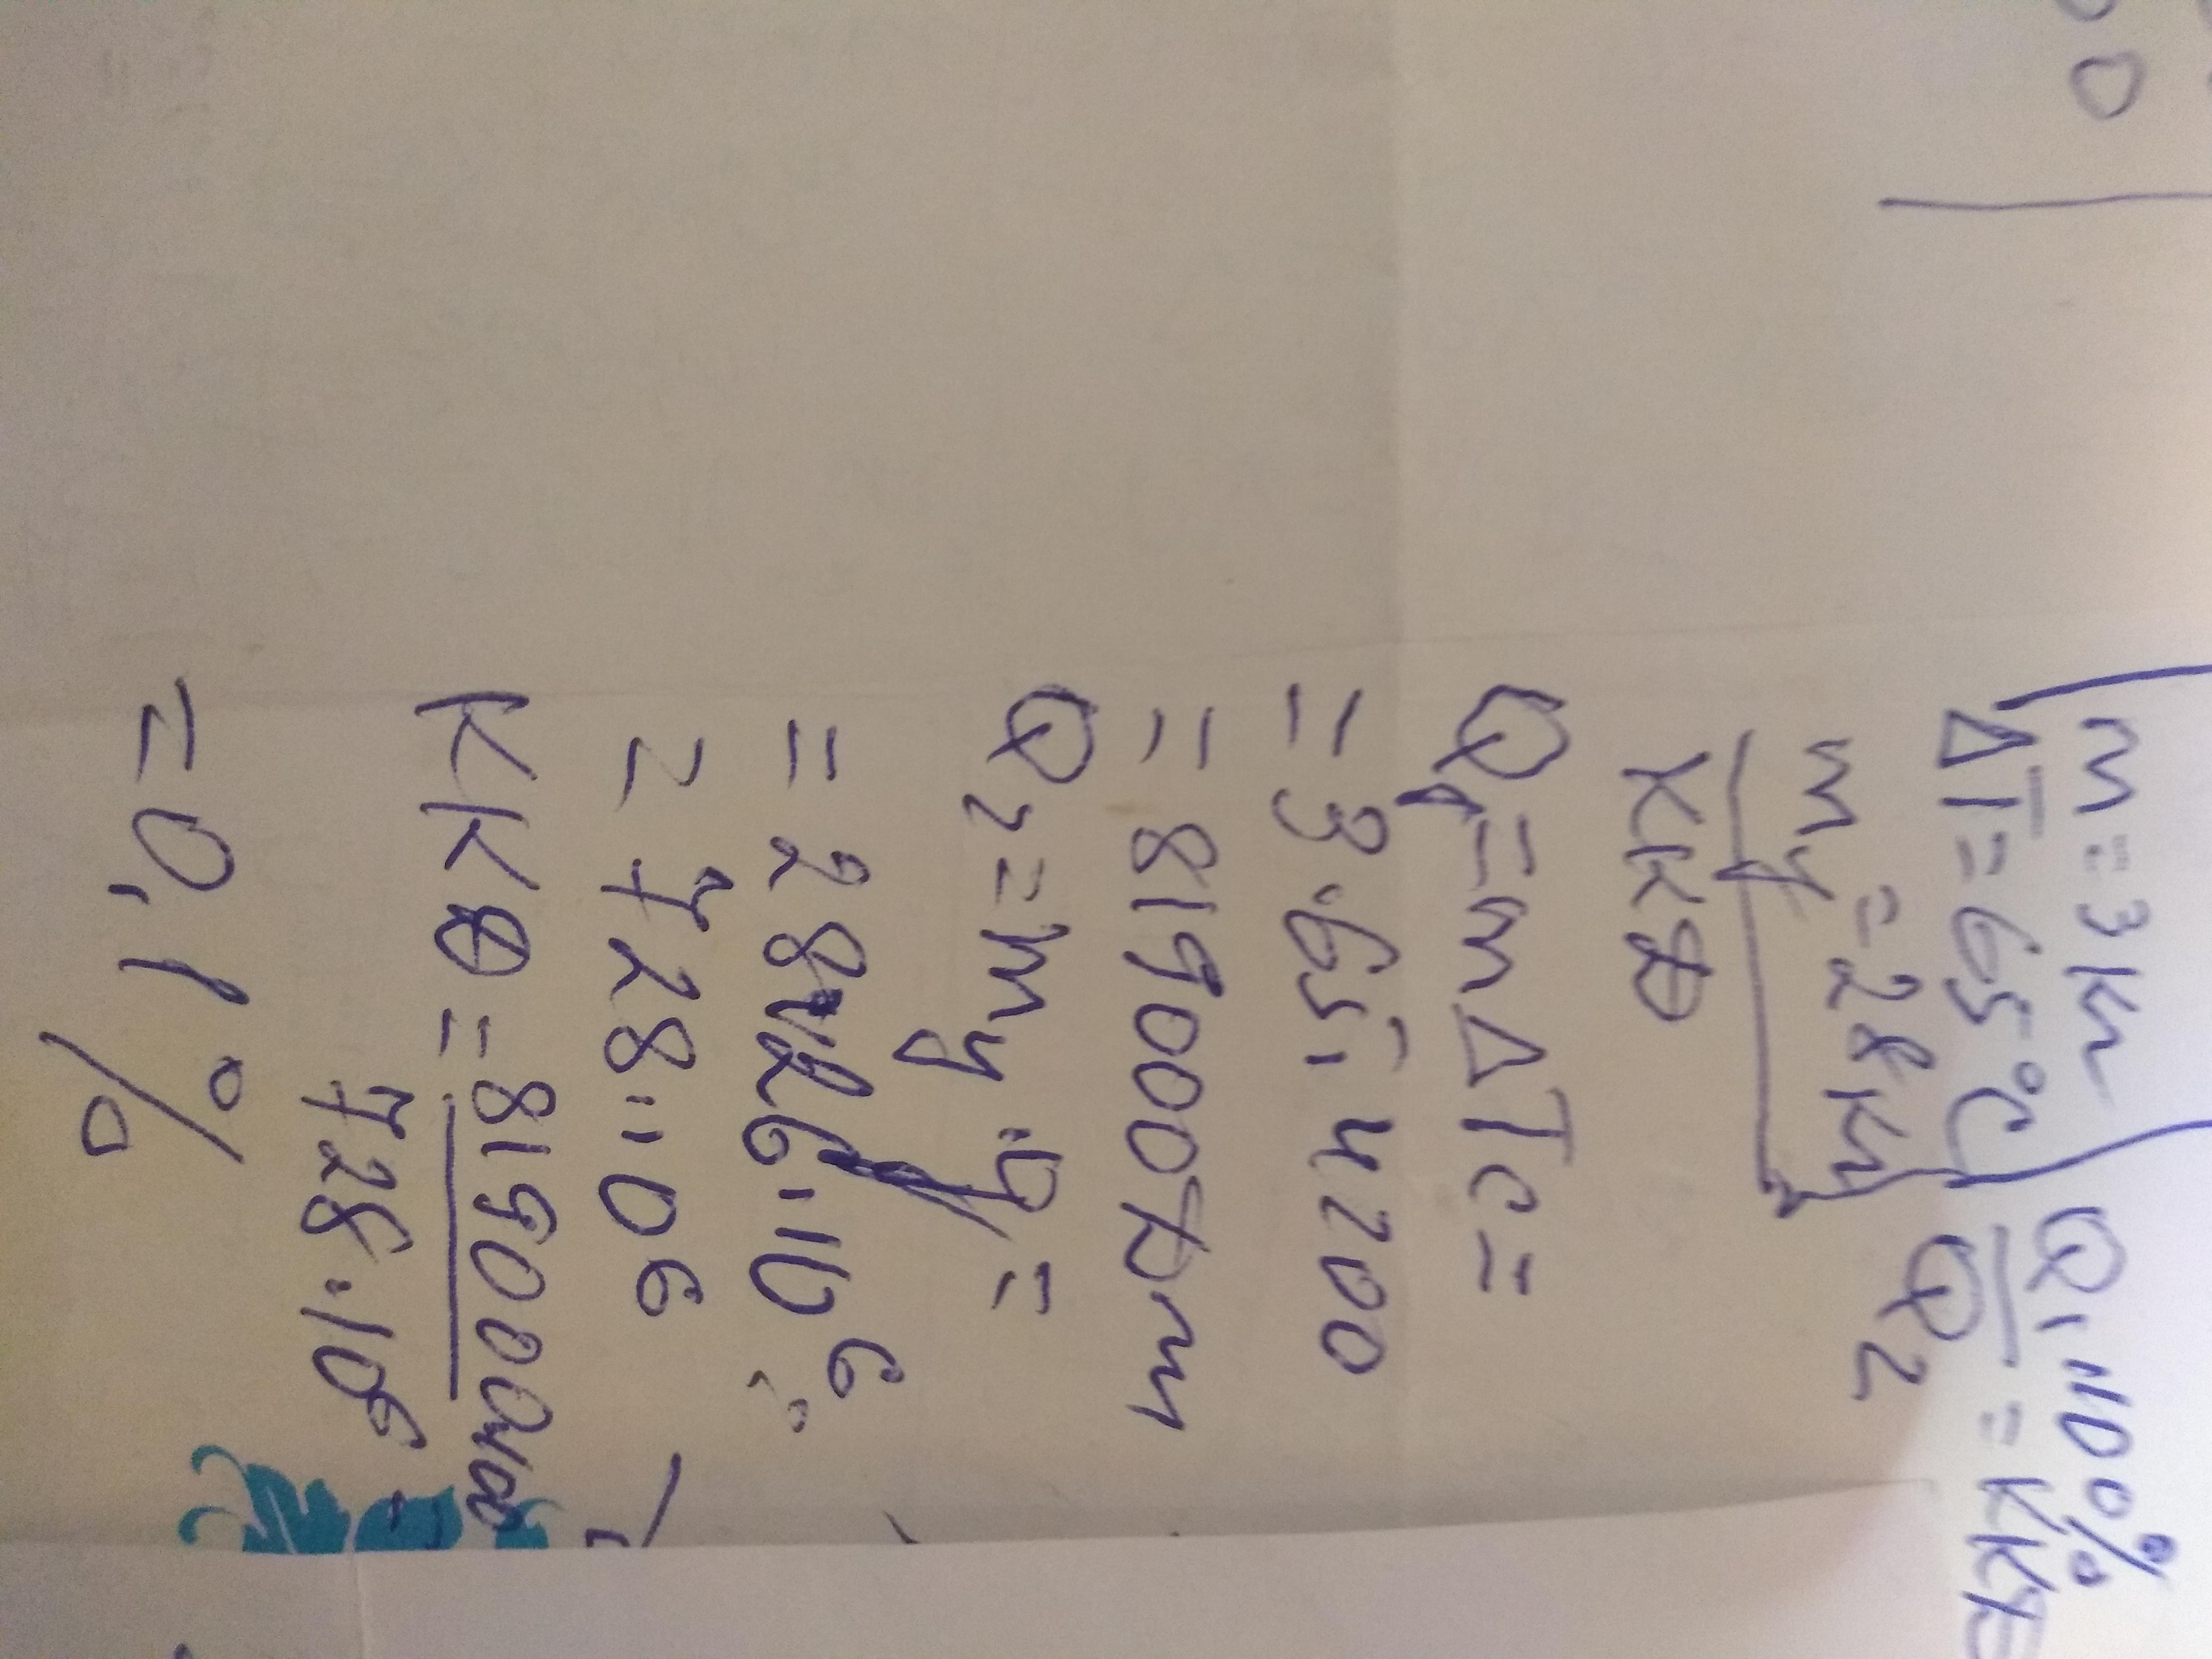 m = 3 кг
ΔT = 65°C
my = 28 кг
ККД
Q1·100%
Q2
= ККД
Q1 = mΔTc =
= 3·65·4200
= 819000 Дж
Q2 = my · q =
= 28 · 10⁶ =
= 728·10⁶
ККД = 819000 · 100
728·10⁶
= 0,1 %